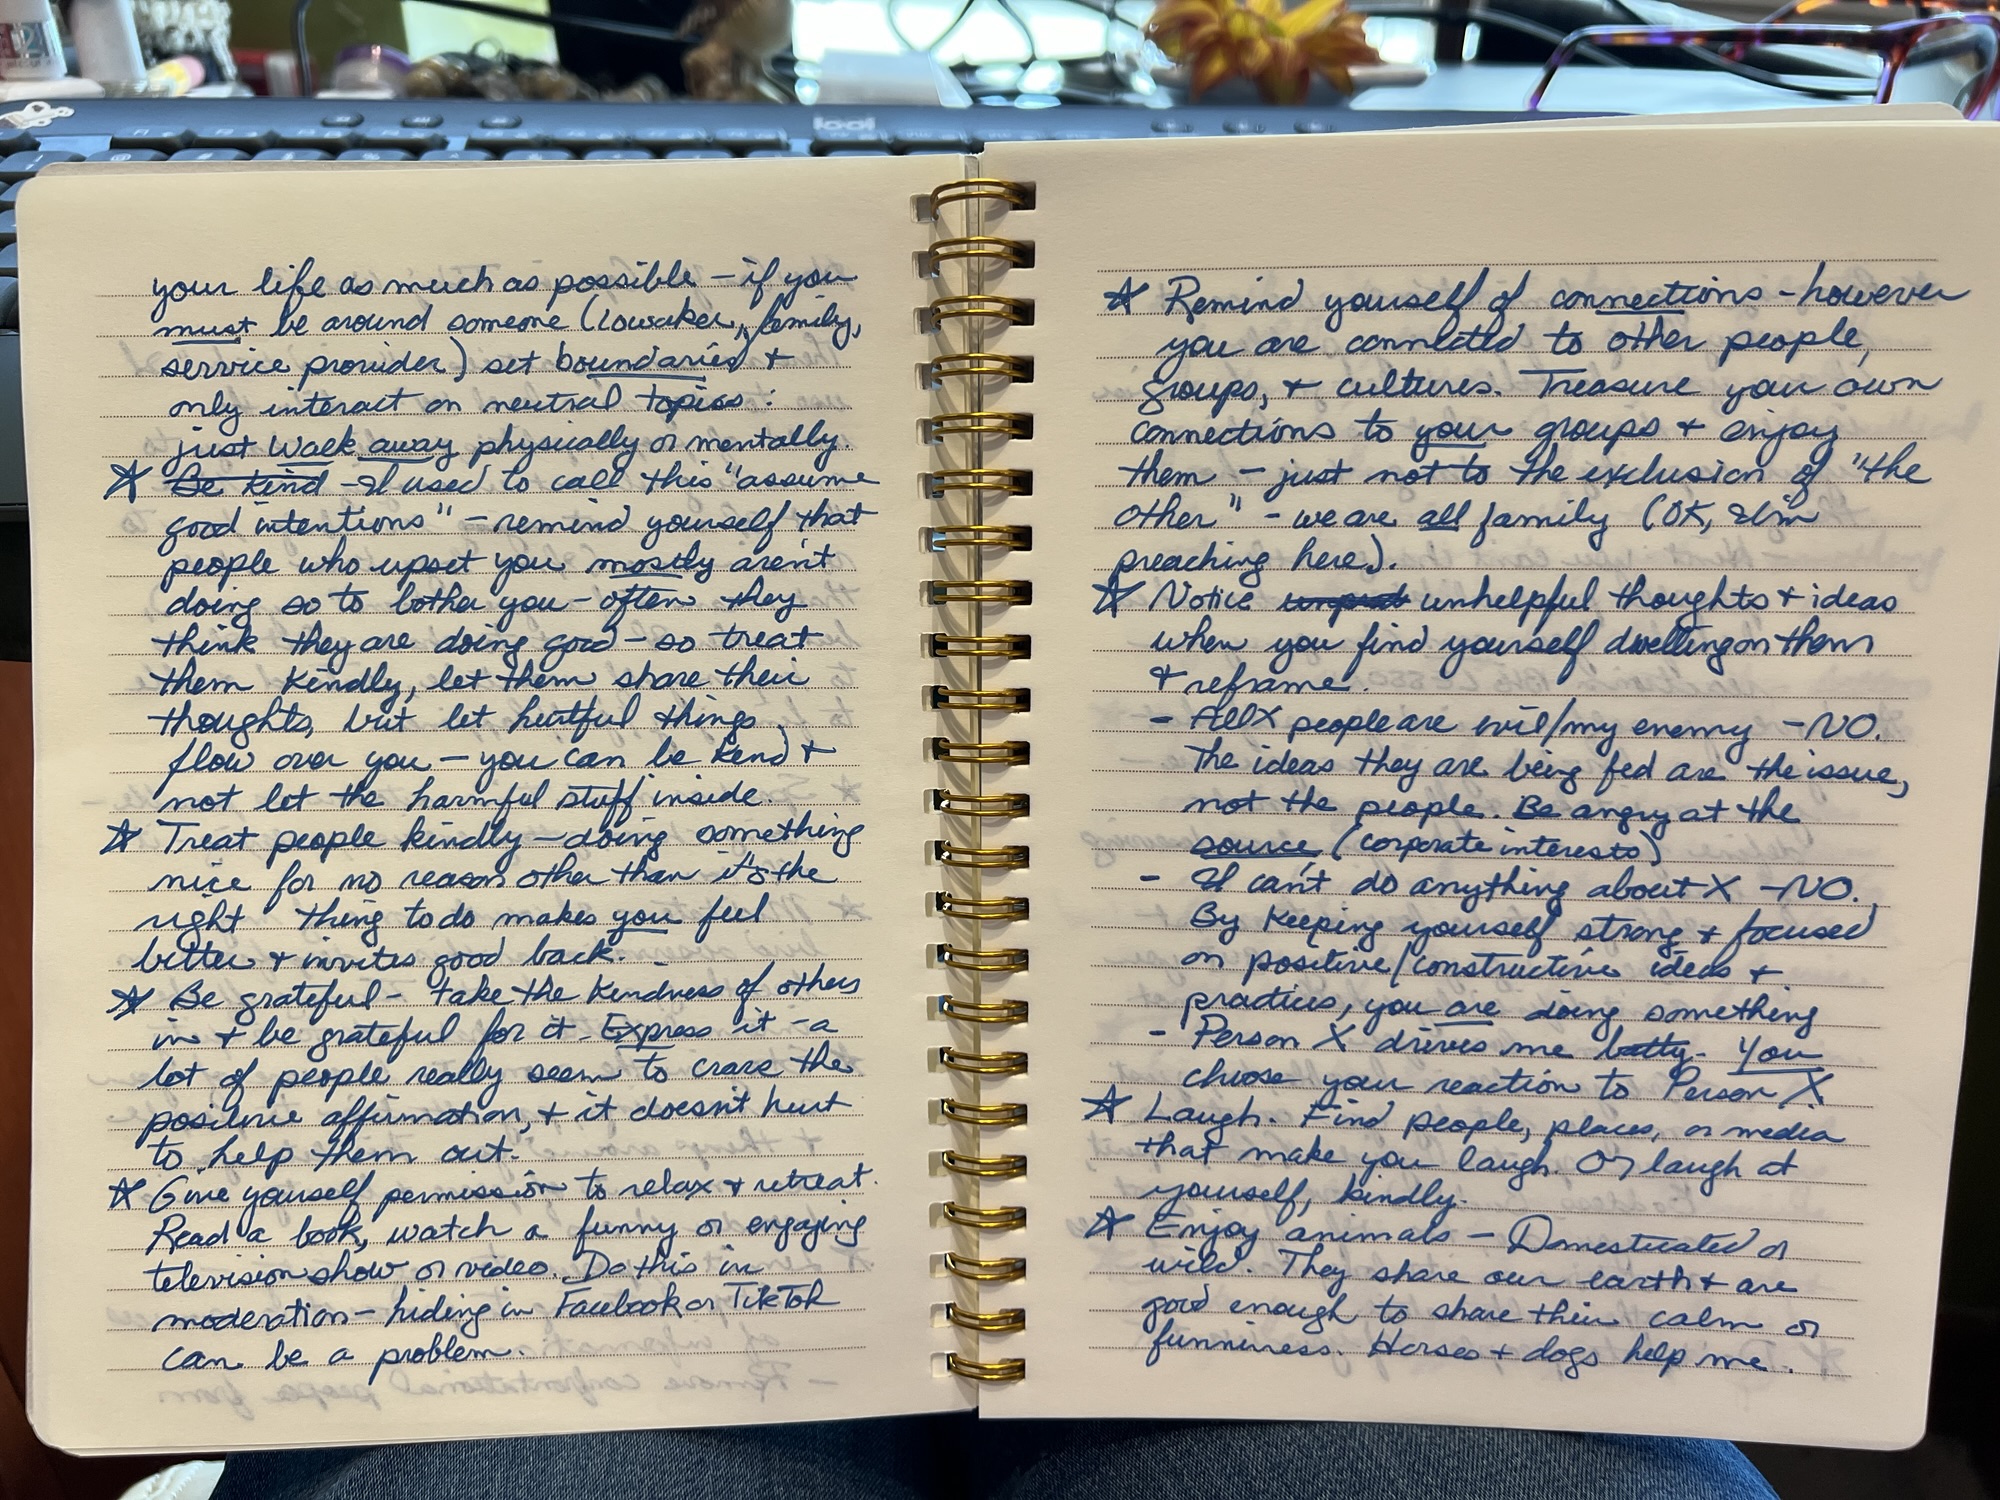 your life as much as possible – if you
must be around someone (coworker, family,
service provider) set boundaries +
only interact on neutral topics:
just walk away physically or mentally.
☆ Be kind – I used to call this "assume
good intentions" – remind yourself that
people who upset you mostly aren't
doing so to bother you – often they
think they are doing good – so treat
them kindly, let them share their
thoughts, but let hurtful things
flow over you – you can be kind +
not let the harmful stuff inside.
☆ Treat people kindly – doing something
nice for no reason other than it's the
right thing to do makes you feel
better + invites good back.
☆ Be grateful – take the kindness of others
in + be grateful for it. Express it – a
lot of people really seem to crave the
positive affirmation, + it doesn't hurt
to help them out.
☆ Give yourself permission to relax + retreat.
Read a book, watch a funny or engaging
television show or video. Do this in
moderation – hiding in Facebook or TikTok
can be a problem.
☆ Remind yourself of connections – however
you are connected to other people,
groups, + cultures. Treasure your own
connections to your groups + enjoy
them – just not to the exclusion of "the
other" – we are all family (OK, I'm
preaching here).
☆ Notice unhelpful thoughts + ideas
when you find yourself dwelling on them
+ reframe.
– All X people are evil/my enemy – NO.
The ideas they are being fed are the issue,
not the people. Be angry at the
source (corporate interests)
– I can't do anything about X – NO.
By keeping yourself strong + focused
on positive/constructive ideas +
practices, you are doing something
– Person X drives me batty. You
choose your reaction to Person X
☆ Laugh. Find people, places, or media
that make you laugh. Or laugh at
yourself, kindly.
☆ Enjoy animals – Domesticated or
wild. They share our earth + are
good enough to share their calm or
funniness. Horses + dogs help me.